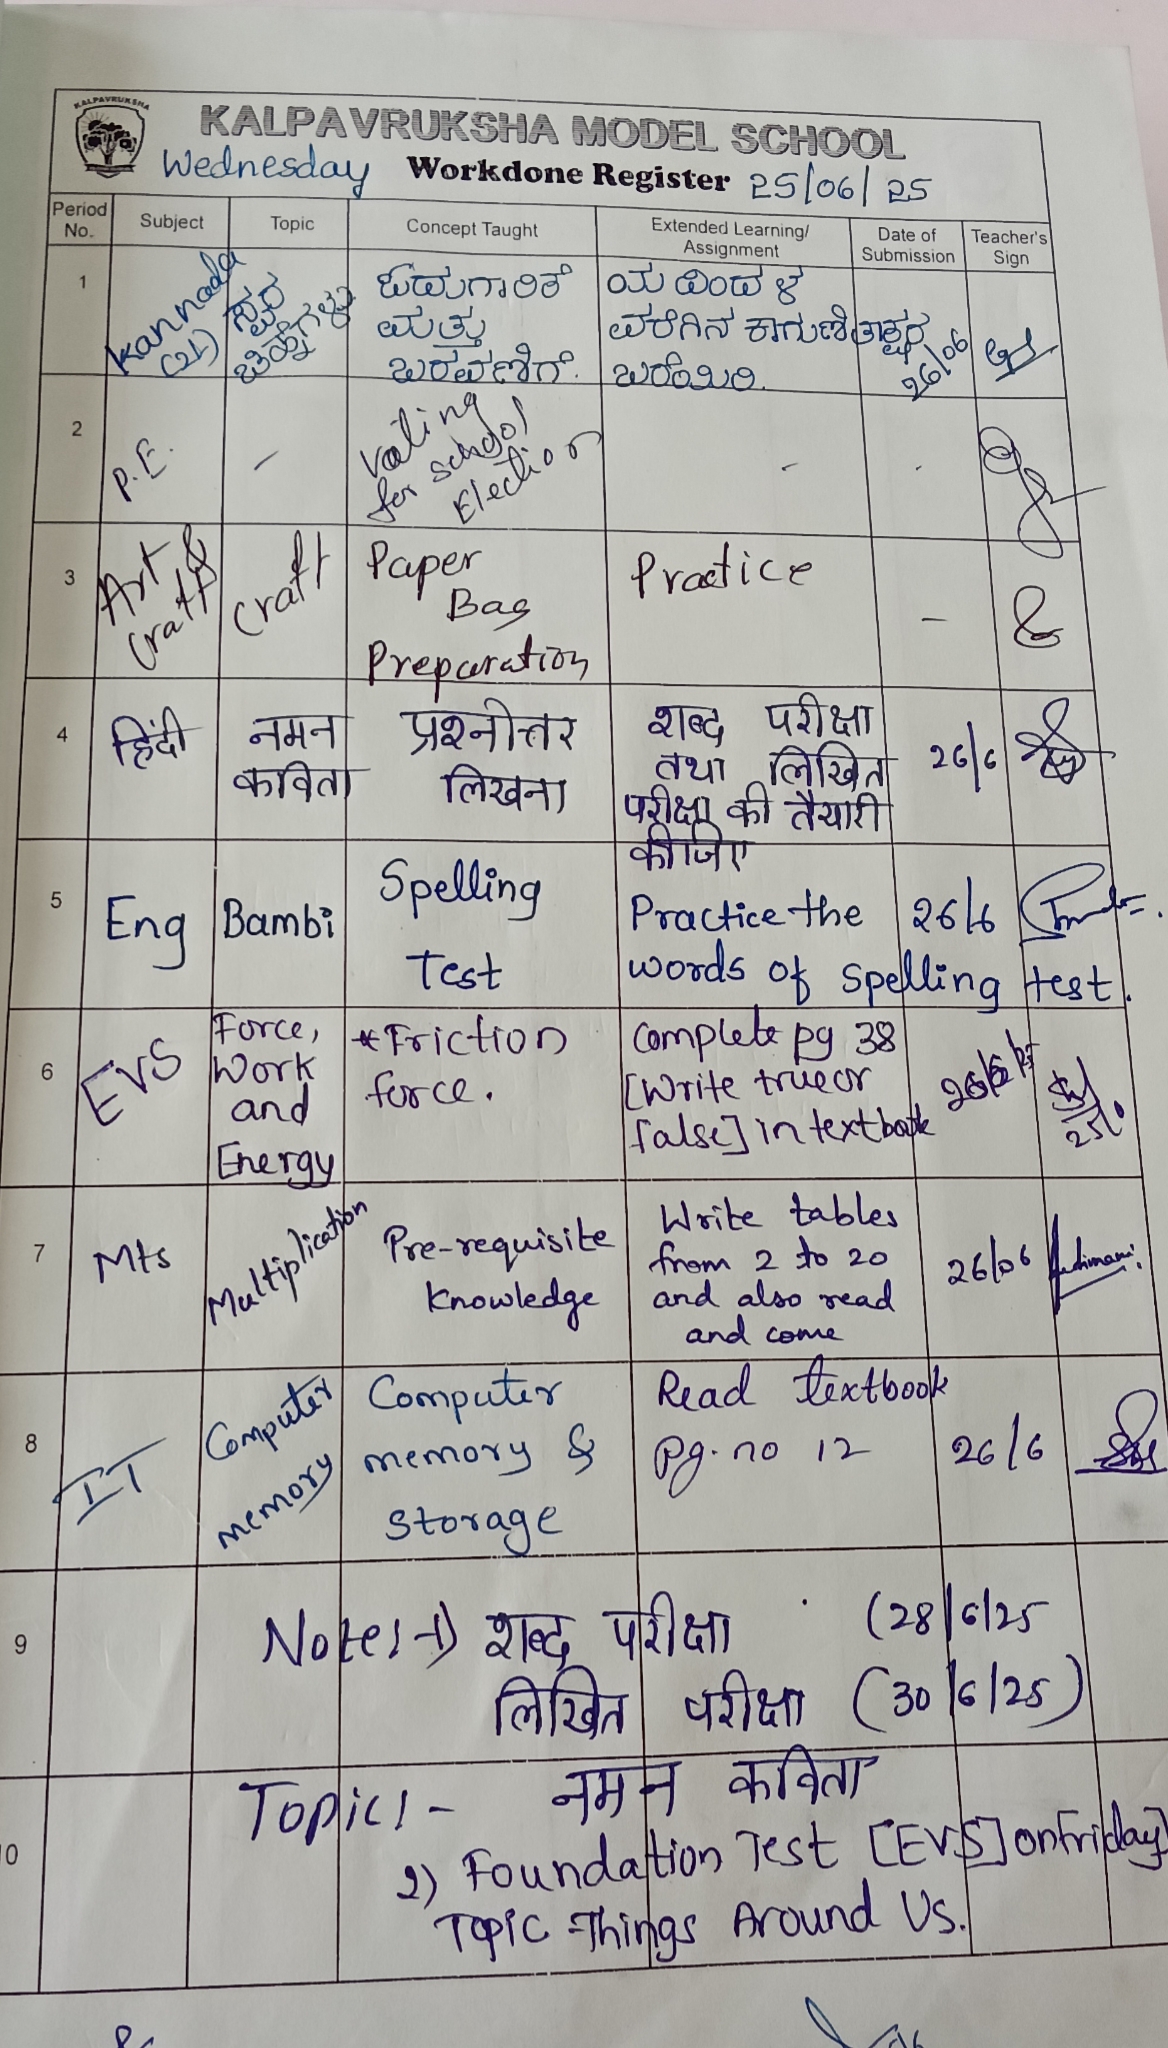 KALPAVRUKSHA
KALPAVRUKSHA MODEL SCHOOL
Wednesday Workdone Register 25/06/25
Period No. Subject Topic Concept Taught Extended Learning/ Assignment Date of Submission Teacher's Sign
1
Kannada (2L)
ಸ್ವರ
ಚಿಹ್ನೆಗಳು
ಓದುಗಾರಿಕೆ
ಮತ್ತು
ಬರವಣಿಗೆ.
ಯ ದಿಂದ ಳ
ವರೆಗಿನ ಕಾಗುಣಿತಾಕ್ಷರ
ಬರೆಯಿರಿ.
26/06
2
P.E.
-
Voting
for school
Election
-
-
3
Art &
Craft
Craft
Paper
Bag
Preparation
Practice
-
4
हिंदी
नमन
कविता
प्रश्नोत्तर
लिखना
शब्द परीक्षा
तथा लिखित
परीक्षा की तैयारी
कीजिए
26/6
5
Eng
Bambi
Spelling
Test
Practice the
words of spelling test.
26/6
6
EVS
Force,
Work
and
Energy
*Friction
force.
Complete pg 38
[Write true or
false] in textbook
7
Mts
Multiplication
Pre-requisite
knowledge
Write tables
from 2 to 20
and also read
and come
26/06
8
IT
Computer
memory
Computer
memory &
storage
Read textbook
pg. no 12
26/6
9
Note:-1) शब्द परीक्षा (28/6/25
लिखित परीक्षा (30/6/25)
10
Topic:- नमन कविता
2) Foundation Test [EVS] on Friday
Topic -Things Around Us.